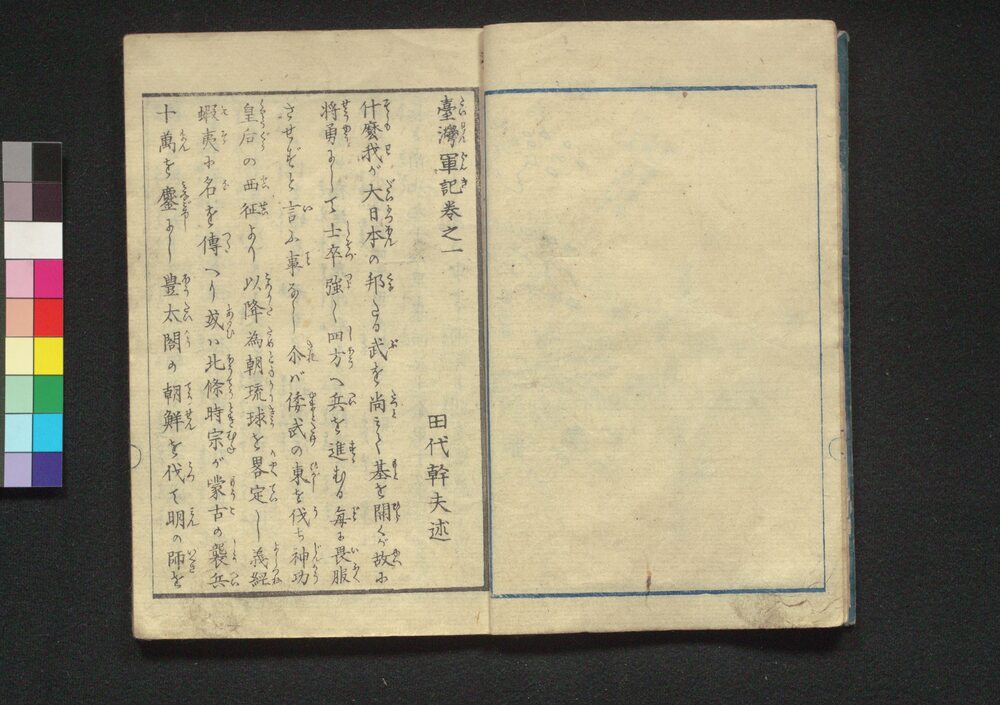 臺灣軍記巻之一
田代幹夫述
什麼我が大日本の邦たる武を尚びて基を開くが故に
将勇にして士卒強く四方へ兵を進むる毎に畏服
させずと言ふ事なし尒バ倭武の東を伐ち神功
皇后の西征より以降為朝琉球を畧定し義経
蝦夷に名を傳へり或ハ北條時宗が蒙古の襲兵
十萬を鏖にし豊太閤の朝鮮を伐て明の師を